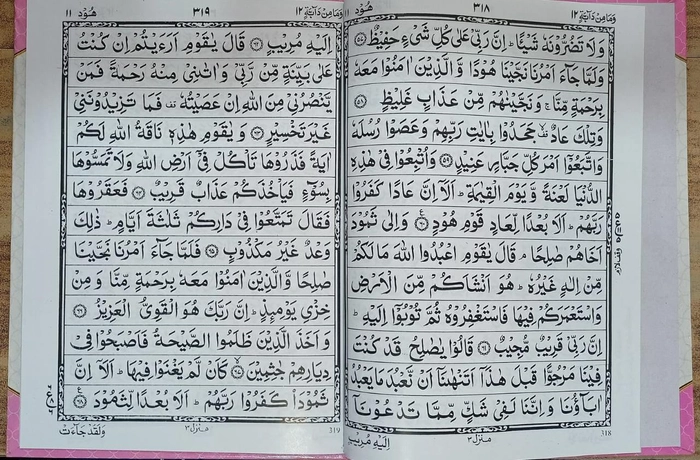 وَمَا مِنْ دَآبَّةٍ ١٢
٣١٨
هُوْد ١١
وَلَا تَضُرُّوْنَهٗ شَيْـًٔا ؕ اِنَّ رَبِّيْ عَلٰى كُلِّ شَيْءٍ حَفِيْظٌ ﴿٥٧﴾
وَلَمَّا جَآءَ اَمْرُنَا نَجَّيْنَا هُوْدًا وَّالَّذِيْنَ اٰمَنُوْا مَعَهٗ
بِرَحْمَةٍ مِّنَّا ۚ وَنَجَّيْنٰهُمْ مِّنْ عَذَابٍ غَلِيْظٍ ﴿٥٨﴾
وَتِلْكَ عَادٌ ۙ جَحَدُوْا بِاٰيٰتِ رَبِّهِمْ وَعَصَوْا رُسُلَهٗ
وَاتَّبَعُوْٓا اَمْرَ كُلِّ جَبَّارٍ عَنِيْدٍ ﴿٥٩﴾ وَاُتْبِعُوْا فِيْ هٰذِهِ
الدُّنْيَا لَعْنَةً وَّيَوْمَ الْقِيٰمَةِ ؕ اَلَآ اِنَّ عَادًا كَفَرُوْا
رَبَّهُمْ ؕ اَلَا بُعْدًا لِّعَادٍ قَوْمِ هُوْدٍ ﴿٦٠﴾ وَاِلٰى ثَمُوْدَ
اَخَاهُمْ صٰلِحًا ۘ قَالَ يٰقَوْمِ اعْبُدُوا اللّٰهَ مَا لَكُمْ
مِّنْ اِلٰهٍ غَيْرُهٗ ؕ هُوَ اَنْشَاَكُمْ مِّنَ الْاَرْضِ
وَاسْتَعْمَرَكُمْ فِيْهَا فَاسْتَغْفِرُوْهُ ثُمَّ تُوْبُوْٓا اِلَيْهِ ؕ
اِنَّ رَبِّيْ قَرِيْبٌ مُّجِيْبٌ ﴿٦١﴾ قَالُوْا يٰصٰلِحُ قَدْ كُنْتَ
فِيْنَا مَرْجُوًّا قَبْلَ هٰذَآ اَتَنْهٰىنَآ اَنْ نَّعْبُدَ مَا يَعْبُدُ
اٰبَآؤُنَا وَاِنَّنَا لَفِيْ شَكٍّ مِّمَّا تَدْعُوْنَآ
318
منزل ٣
اِلَيْهِ مُرِيْبٍ
وَمَا مِنْ دَآبَّةٍ ١٢
٣١٩
هُوْد ١١
اِلَيْهِ مُرِيْبٍ ﴿٦٢﴾ قَالَ يٰقَوْمِ اَرَءَيْتُمْ اِنْ كُنْتُ
عَلٰى بَيِّنَةٍ مِّنْ رَّبِّيْ وَاٰتٰىنِيْ مِنْهُ رَحْمَةً فَمَنْ
يَّنْصُرُنِيْ مِنَ اللّٰهِ اِنْ عَصَيْتُهٗ ۫ فَمَا تَزِيْدُوْنَنِيْ
غَيْرَ تَخْسِيْرٍ ﴿٦٣﴾ وَيٰقَوْمِ هٰذِهٖ نَاقَةُ اللّٰهِ لَكُمْ
اٰيَةً فَذَرُوْهَا تَاْكُلْ فِيْٓ اَرْضِ اللّٰهِ وَلَا تَمَسُّوْهَا
بِسُوْٓءٍ فَيَاْخُذَكُمْ عَذَابٌ قَرِيْبٌ ﴿٦٤﴾ فَعَقَرُوْهَا
فَقَالَ تَمَتَّعُوْا فِيْ دَارِكُمْ ثَلٰثَةَ اَيَّامٍ ؕ ذٰلِكَ
وَعْدٌ غَيْرُ مَكْذُوْبٍ ﴿٦٥﴾ فَلَمَّا جَآءَ اَمْرُنَا نَجَّيْنَا
صٰلِحًا وَّالَّذِيْنَ اٰمَنُوْا مَعَهٗ بِرَحْمَةٍ مِّنَّا وَمِنْ
خِزْيِ يَوْمِئِذٍ ؕ اِنَّ رَبَّكَ هُوَ الْقَوِيُّ الْعَزِيْزُ ﴿٦٦﴾
وَاَخَذَ الَّذِيْنَ ظَلَمُوا الصَّيْحَةُ فَاَصْبَحُوْا فِيْ
دِيَارِهِمْ جٰثِمِيْنَ ﴿٦٧﴾ كَاَنْ لَّمْ يَغْنَوْا فِيْهَا ؕ اَلَآ اِنَّ
ثَمُوْدَا۟ كَفَرُوْا رَبَّهُمْ ؕ اَلَا بُعْدًا لِّثَمُوْدَ ﴿٦٨﴾
319
منزل ٣
وَلَقَدْ جَآءَتْ